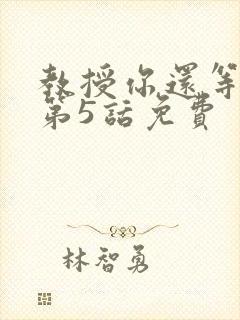 教授你還等
第5話免費
林智勇